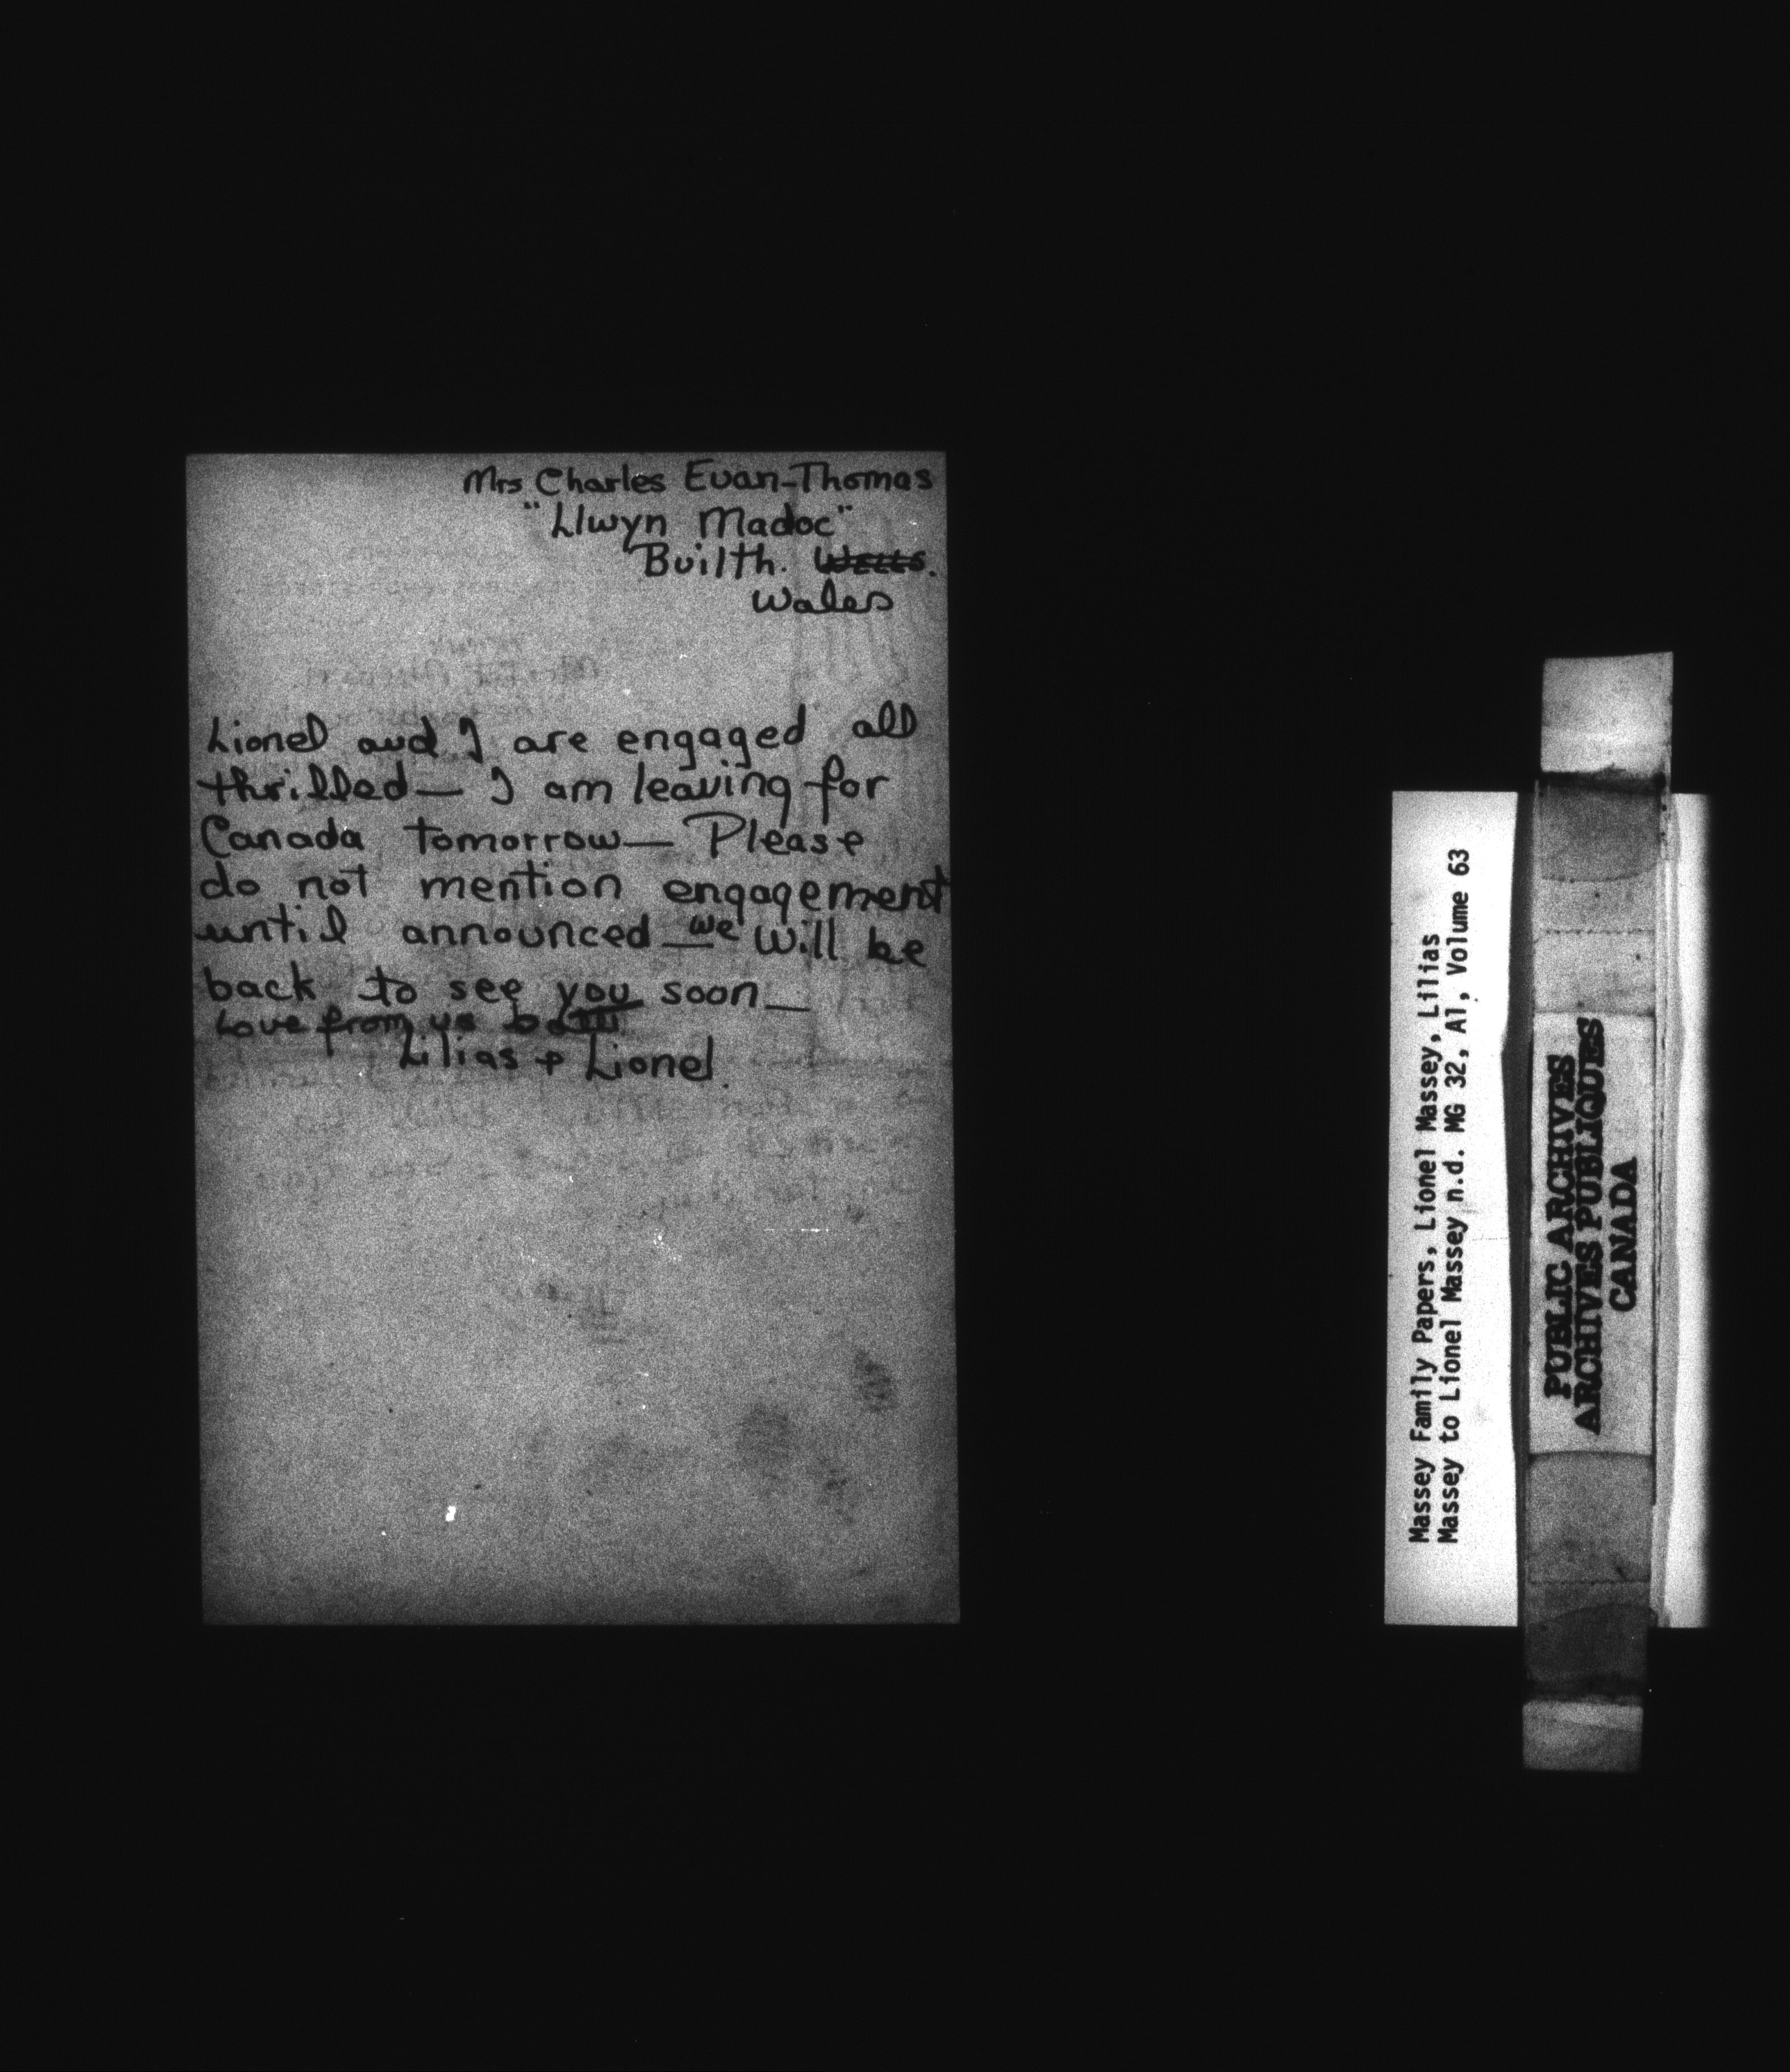 Mrs Charles Evan-Thomas
"Llwyn Madoc"
Builth. Wells.
Wales
Lionel and I are engaged all
thrilled— I am leaving for
Canada tomorrow— Please
do not mention engagement
until announced — we will be
back to see you soon —
Love from us both
Lilias + Lionel.
Massey Family Papers, Lionel Massey, Lilias
Massey to Lionel Massey n.d. MG 32, A1, Volume 63
PUBLIC ARCHIVES
ARCHIVES PUBLIQUES
CANADA